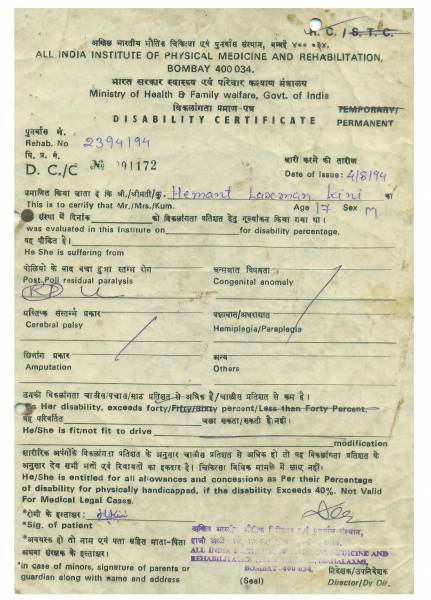 H. C. / S. T. C.
अखिल भारतीय भौतिक चिकित्सा एवं पुनर्वास संस्थान, बम्बई ४०० ०३४.
ALL INDIA INSTITUTE OF PHYSICAL MEDICINE AND REHABILITATION,
BOMBAY 400 034.
भारत सरकार स्वास्थ्य एवं परिवार कल्याण मंत्रालय
Ministry of Health & Family welfare, Govt. of India
विकलांगता प्रमाण-पत्र
TEMPORARY/
DISABILITY CERTIFICATE PERMANENT
पुनर्वास नं.
Rehab. No 2394/94
वि. प्र. नं.
D. C./C No 01172
जारी करने की तारीख
Date of issue: 4/8/94
प्रमाणित किया जाता है कि श्री/श्रीमती/कु. Hemant Laxman Kini का
This is to certify that Mr./Mrs./Kum. Age 17 Sex M
संस्था में दिनांक को विकलांगता प्रतिशत हेतु मूल्यांकन किया गया था।
was evaluated in this Institute on for disability percentage.
वह पीड़ित है।
He She is suffering from
पोलियो के बाद बचा हुआ स्तम्भ रोग जन्मजात विषमता
Post Poli residual paralysis Congenital anomaly
मस्तिष्क संस्तम्भ प्रकार पक्षाघात/अधराघात
Cerebral palsy Hemiplegia/Paraplegia
छिन्नांग प्रकार अन्य
Amputation Others
उनकी विकलांगता चालीस/पचास/साठ प्रतिशत से अधिक है/चालीस प्रतिशत से कम है।
As Her disability, exceeds forty/Fifty/Sixty percent/Less than Forty Percent.
वह परिवर्तित चला सकता/सकती है/नहीं।
He/She is fit/not fit to drive
modification
शारीरिक अपंगोंके विकलांगता प्रतिशत के अनुसार चालीस प्रतिशत से अधिक हो तो वह विकलांगता प्रतिशत के
अनुसार देय सभी भत्तों एवं रियायतों का हकदार है। चिकित्सा विधिक मामले में लागू नहीं।
He/She is entitled for all allowances and concessions as Per their Percentage
of disability for physically handicapped, if the disability Exceeds 40%. Not Valid
For Medical Legal Cases.
*रोगी के हस्ताक्षर:
*Sig. of patient
*अवयस्क हो तो नाम एवं पता सहित माता-पिता
अथवा संरक्षक के हस्ताक्षर।
*in case of minors, signature of parents or
guardian along with name and address
अखिल भारतीय भौतिक चिकित्सा एवं पुनर्वास संस्थान,
ALL INDIA INSTITUTE OF PHYSICAL MEDICINE AND
REHABILITATION, MAHALAXMI,
BOMBAY-400 034.
(Seal)
निदेशक/उपनिदेशक
Director/Dy Dir.